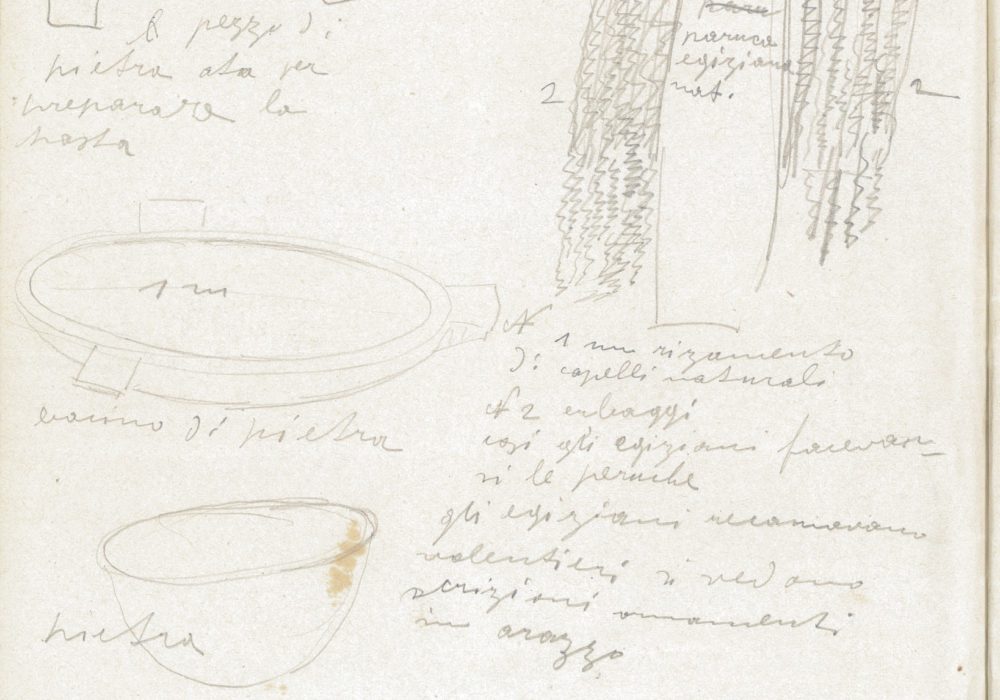 6 pezzo di
pietra ata per
preparare la
pasta
paruca
egiziana
nat.
2
2
1 m
N
1 un rizamento
di capelli naturali
N 2 erbaggi
cosi gli egiziani facevan-
si le peruche
gli egiziani recamavano
volentieri si vedono
scrizioni ornamenti
in arazzo
bacino di pietra
pietra